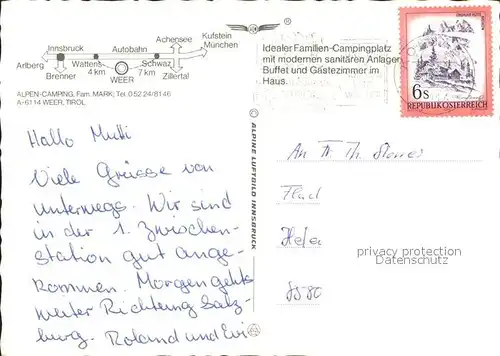 Innsbruck
Autobahn
Achensee
Kufstein
München
Arlberg
Wattens
Schwaz
Brenner
4 km
WEER
7 km
Zillertal
ALPEN-CAMPING, Fam. MARK; Tel. 0 52 24/8146
A-6114 WEER, TIROL
Idealer Familien-Campingplatz
mit modernen sanitären Anlagen
Buffet und Gästezimmer im
Haus.
6s
REPUBLIK ÖSTERREICH
© ALPINE LUFTBILD INNSBRUCK
Hallo Mutti
Viele Grüsse von
unterwegs. Wir sind
in der 1. Zwischen-
station gut ange-
kommen. Morgen gehts
weiter Richtung Salz-
burg. Roland und Evi
An
Th
8580
privacy protection
Datenschutz